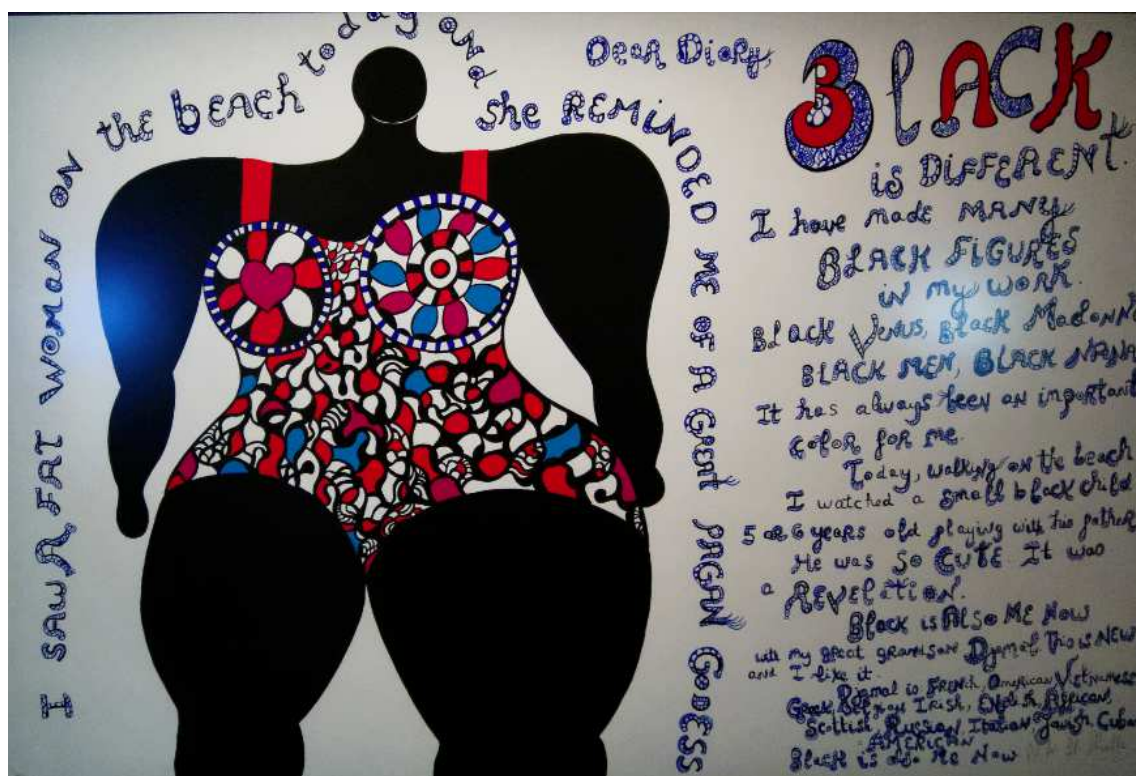 I SAW A FAT WOMAN ON the BEACH today and she REMINDED ME OF A GREAT PAGAN GODESS
Dear Diary,
BLACK
is DIFFERENT.
I have made MANY
BLACK FIGURES
in my WORK.
BLACK VENUS, BLACK MADONN
BLACK MEN, BLACK NANA
It has always been an important
color for me.
Today, walking on the beach
I watched a small black child
5 OR 6 years old playing with his father
He was SO CUTE. It was
a REVELATION.
Black is ALSO ME NOW
with my great grandson Djamal. This is NEW
and I like it.
Djamal is FRENCH, American, Vietnamese
Greek, Belgian, Irish, English, African,
Scottish, Russian, Italian, Jewish, Cuban
AMERICAN
Black is also me Now